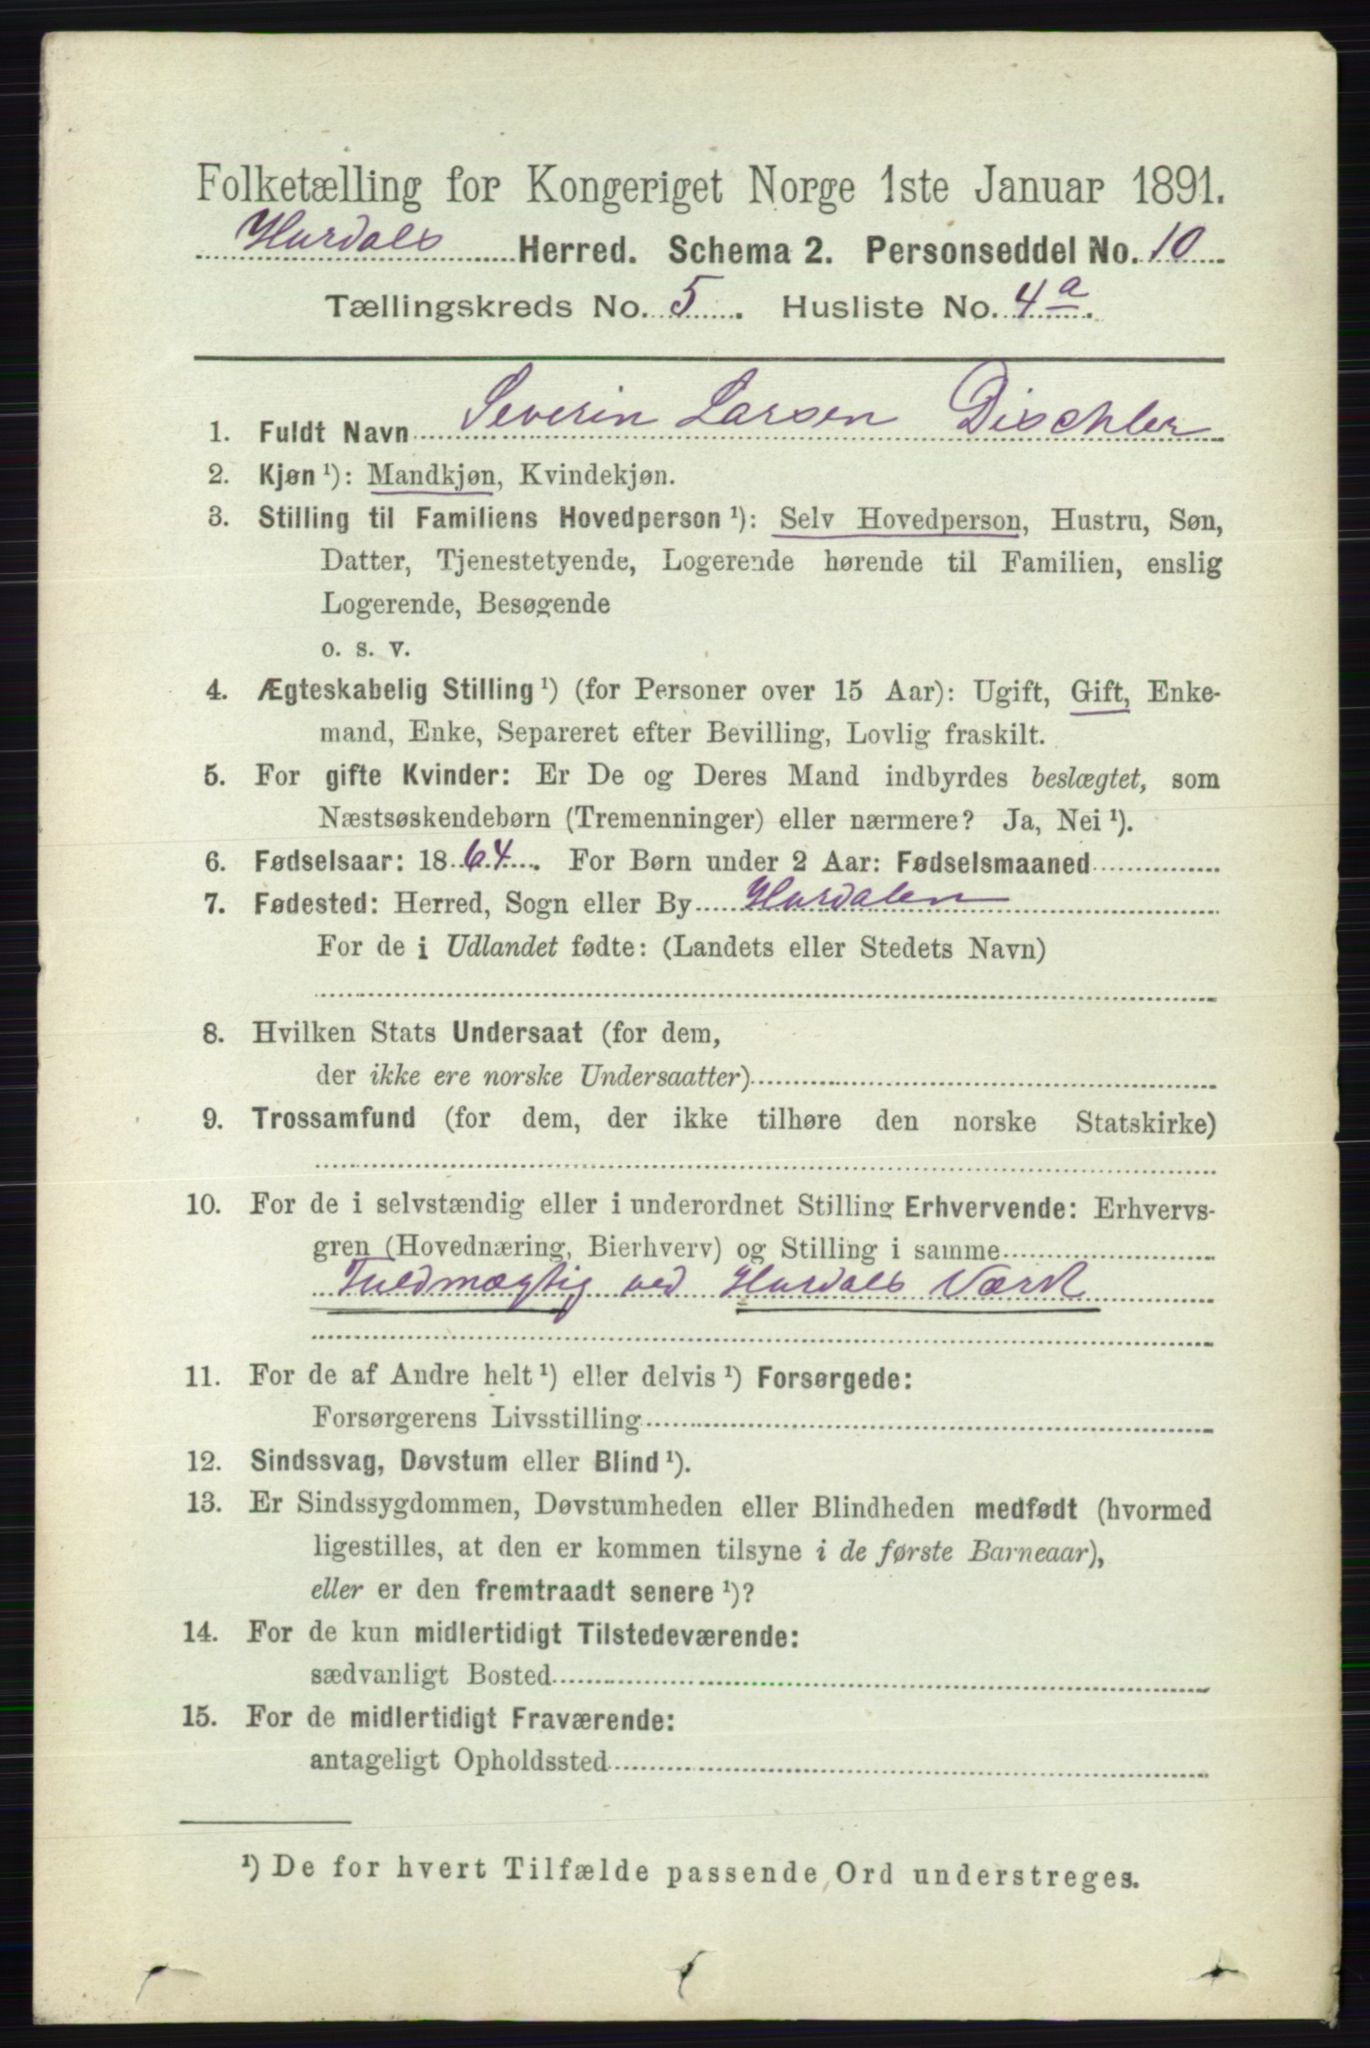 Folketælling for Kongeriget Norge 1ste Januar 1891.
Hurdals Herred. Schema 2. Personseddel No. 10
Tællingskreds No. 5. Husliste No. 4a.
1. Fuldt Navn Severin Larsen Dischler
2. Kjøn ¹): Mandkjøn, Kvindekjøn.
3. Stilling til Familiens Hovedperson ¹): Selv Hovedperson, Hustru, Søn,
Datter, Tjenestetyende, Logerende hørende til Familien, enslig
Logerende, Besøgende
o. s. v.
4. Ægteskabelig Stilling ¹) (for Personer over 15 Aar): Ugift, Gift, Enke-
mand, Enke, Separeret efter Bevilling, Lovlig fraskilt.
5. For gifte Kvinder: Er De og Deres Mand indbyrdes beslægtet, som
Næstsøskendebørn (Tremenninger) eller nærmere? Ja, Nei ¹).
6. Fødselsaar: 1864. For Børn under 2 Aar: Fødselsmaaned
7. Fødested: Herred, Sogn eller By Hurdalen
For de i Udlandet fødte: (Landets eller Stedets Navn)
8. Hvilken Stats Undersaat (for dem,
der ikke ere norske Undersaatter)
9. Trossamfund (for dem, der ikke tilhøre den norske Statskirke)
10. For de i selvstændig eller i underordnet Stilling Erhvervende: Erhvervs-
gren (Hovednæring, Bierhverv) og Stilling i samme
Fuldmægtig ved Hurdals Værk
11. For de af Andre helt ¹) eller delvis ¹) Forsørgede:
Forsørgerens Livsstilling
12. Sindssvag, Døvstum eller Blind ¹).
13. Er Sindssygdommen, Døvstumheden eller Blindheden medfødt (hvormed
ligestilles, at den er kommen tilsyne i de første Barneaar),
eller er den fremtraadt senere ¹)?
14. For de kun midlertidigt Tilstedeværende:
sædvanligt Bosted
15. For de midlertidigt Fraværende:
antageligt Opholdssted
¹) De for hvert Tilfælde passende Ord understreges.